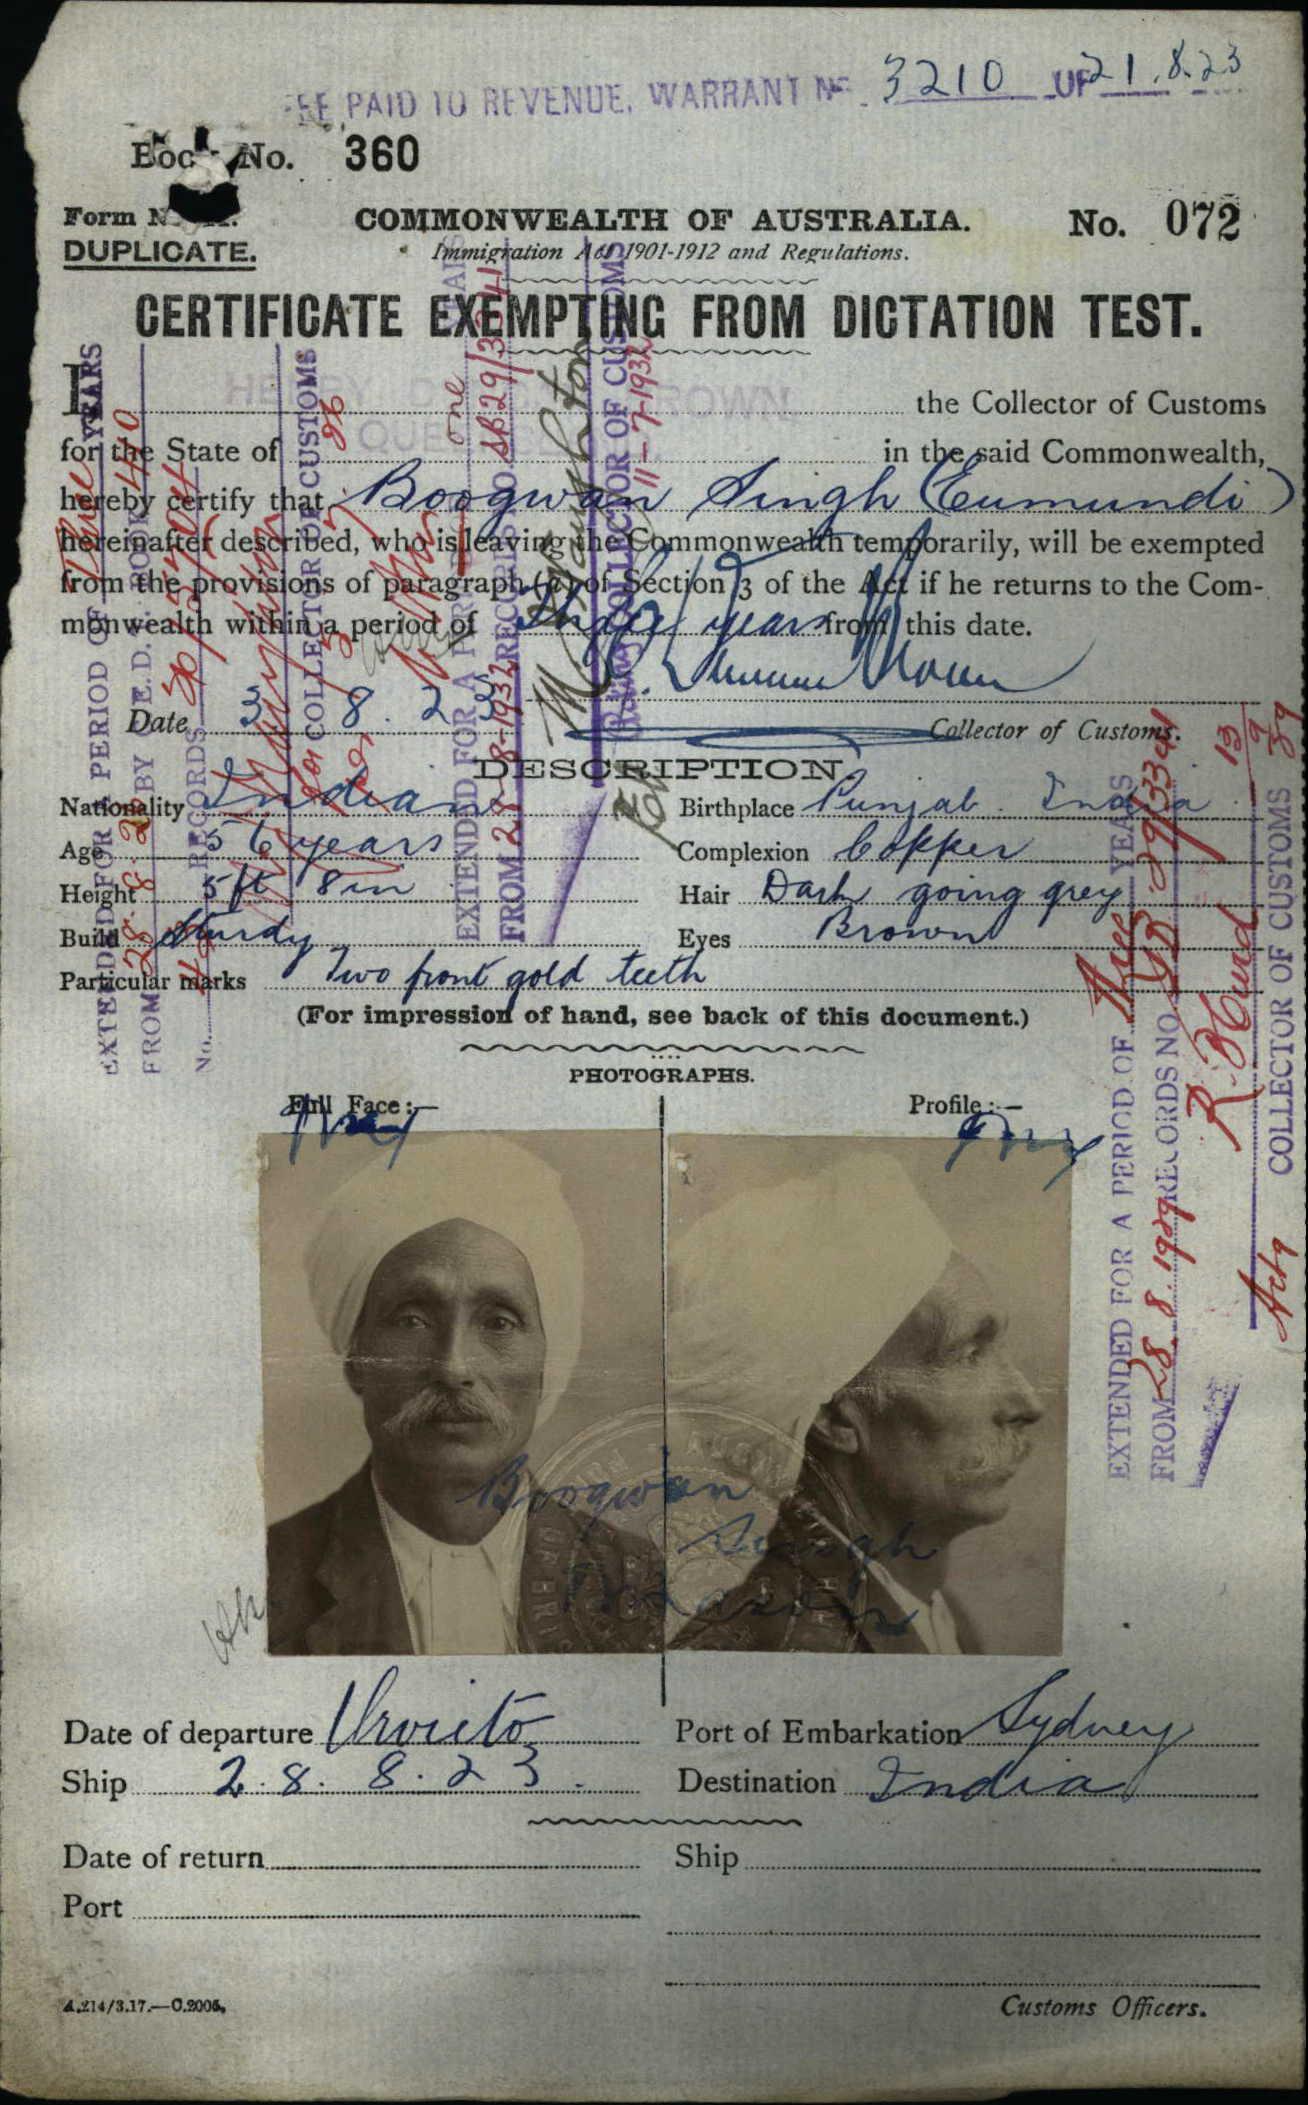 FEE PAID TO REVENUE. WARRANT No 3210 OF 21.8.23
Book No. 360
Form No.
DUPLICATE.
COMMONWEALTH OF AUSTRALIA.
No. 072
Immigration Act 1901-1912 and Regulations.
CERTIFICATE EXEMPTING FROM DICTATION TEST.
I the Collector of Customs
for the State of in the said Commonwealth,
hereby certify that Boogwan Singh (Eumundi)
hereinafter described, who is leaving the Commonwealth temporarily, will be exempted
from the provisions of paragraph (a) of Section 3 of the Act if he returns to the Com-
monwealth within a period of Three years from this date.
Date 3 8. 23
Collector of Customs.
DESCRIPTION.
Nationality Indian
Birthplace Punjab. India
Age 56 years
Complexion Copper
Height 5 ft 8 in
Hair Dark going grey
Build Sturdy
Eyes Brown
Particular marks Two front gold teeth
(For impression of hand, see back of this document.)
PHOTOGRAPHS.
Full Face:—
Profile:—
Boogwan
Singh
Date of departure Orvieto
Port of Embarkation Sydney
Ship 28. 8. 23.
Destination India
Date of return
Ship
Port
A.214/3.17.—C.2005.
Customs Officers.
EXTENDED FOR A PERIOD OF Three YEARS
FROM 28. 8. 26 BY C.E.D.T. BOOK 440
No. RECORDS 26/
COLLECTOR OF CUSTOMS
EXTENDED FOR A PERIOD OF one YEARS
FROM 28-8-1932 RECORDS NO. SB29/3341
COLLECTOR OF CUSTOMS
11-7-1932
EXTENDED FOR A PERIOD OF Three YEARS
FROM 28.8.1929 RECORDS NO. SB 29/3341
Actg COLLECTOR OF CUSTOMS